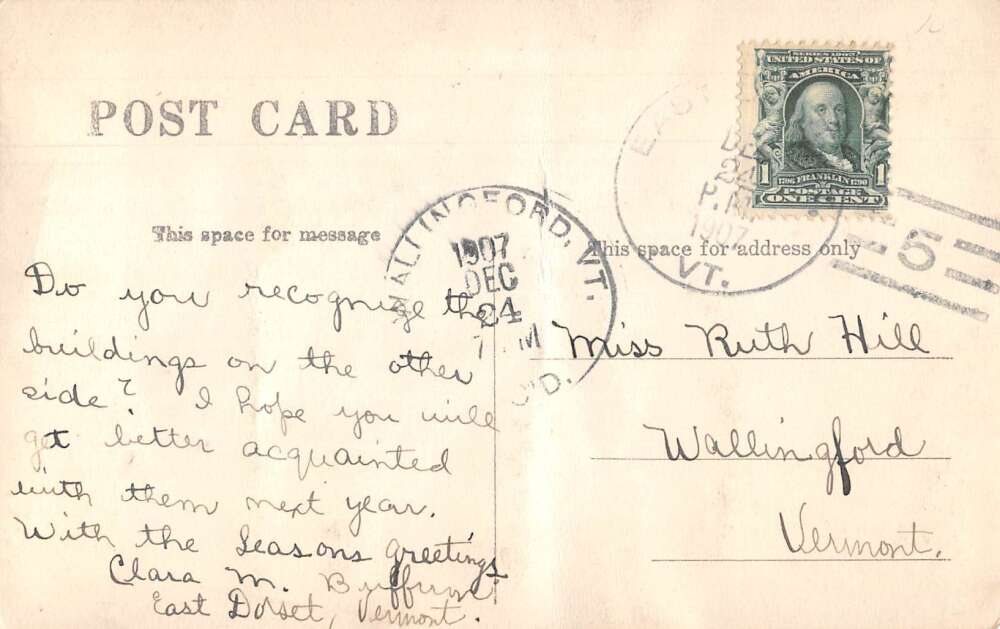 POST CARD
SERIES 1902
UNITED STATES OF
AMERICA
1
1706 FRANKLIN 1790
1
POSTAGE
ONE CENT
EAST
DEC
24
P.M.
1907
VT.
5
WALLINGFORD, VT.
1907
DEC
24
M
This space for message
This space for address only
Do you recognize the
buildings on the other
side? I hope you will
get better acquainted
with them next year.
With the Seasons greetings
Clara M. Buffum
East Dorset, Vermont.
Miss Ruth Hill
Wallingford
Vermont.